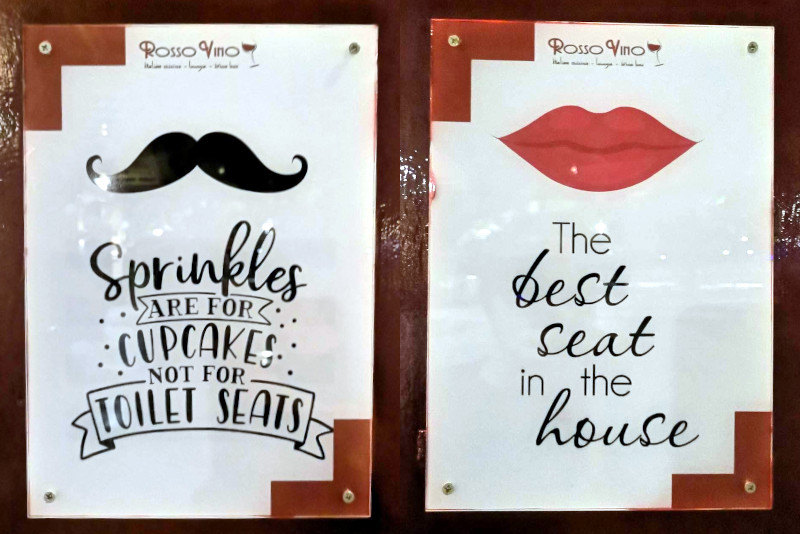 Rosso Vino
Italian cuisine - lounge - Wine bar
Sprinkles
ARE FOR
CUPCAKES
NOT FOR
TOILET SEATS
Rosso Vino
Italian cuisine - lounge - Wine bar
The
best
seat
in the
house